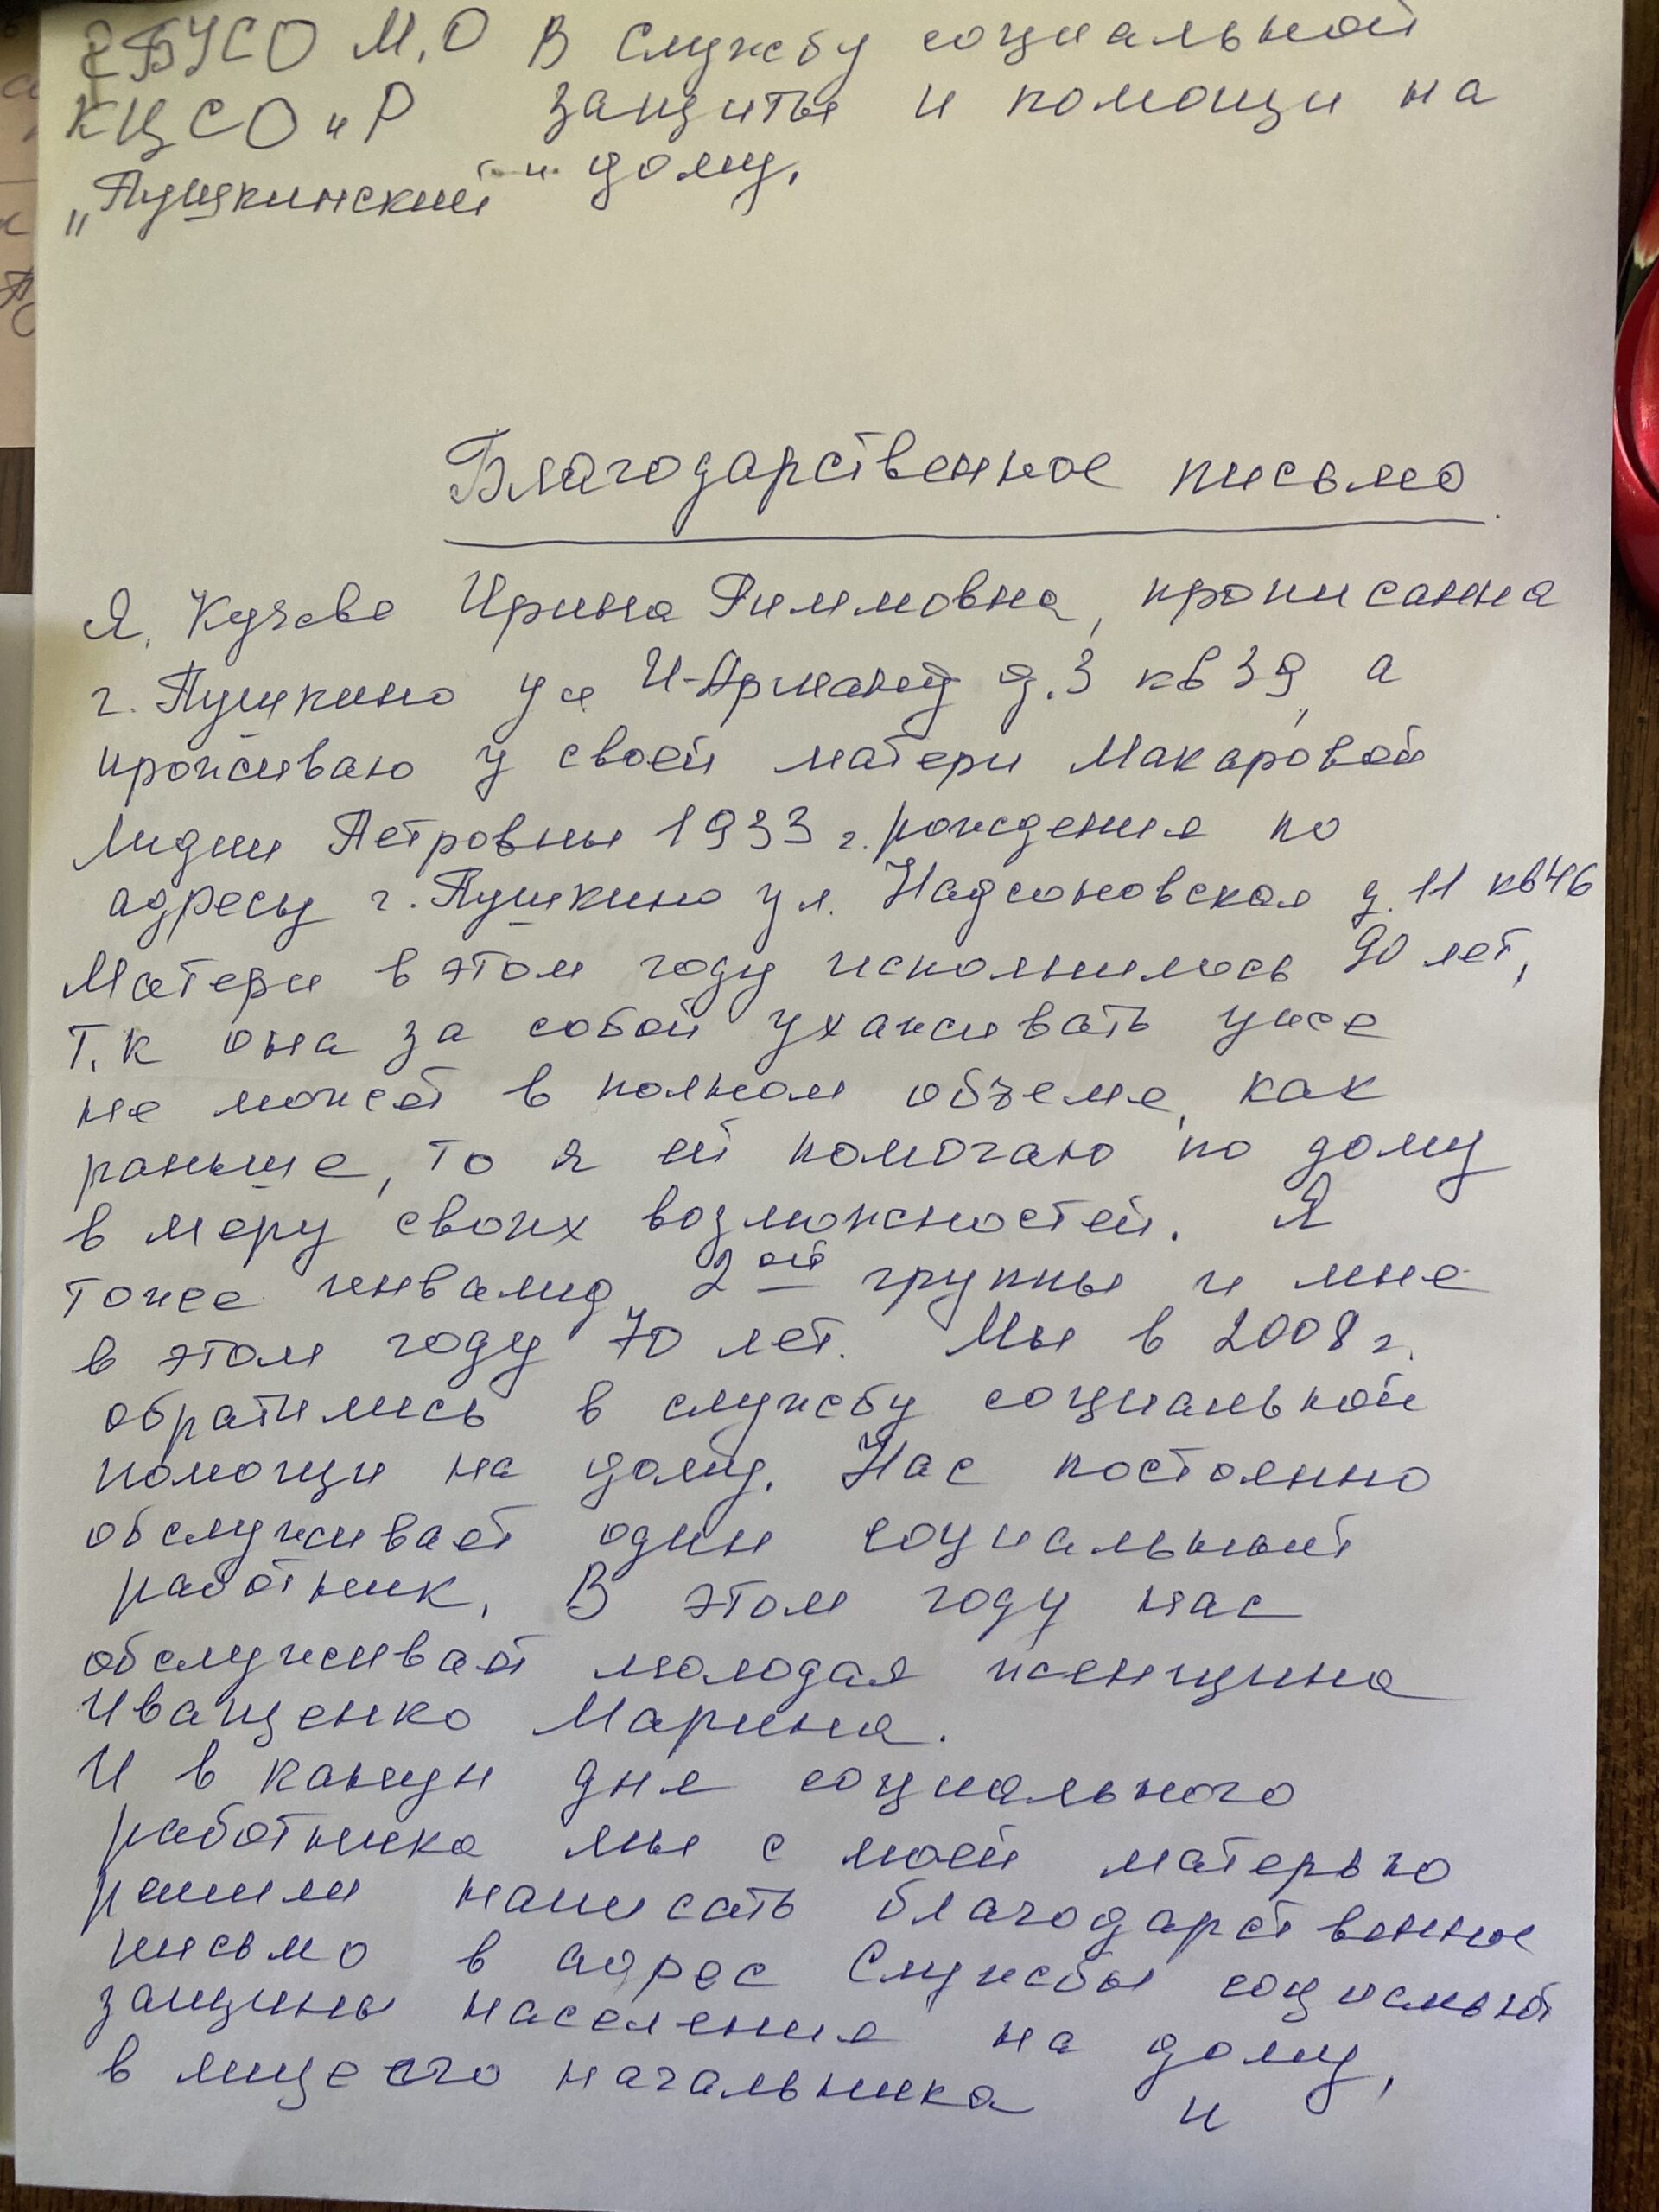 ГБУСО М.О В Службу социальной
КЦСО и Р защиты и помощи на
„Пушкинский" дому.
Благодарственное письмо
Я, Ирина Риммовна, прописанна
г. Пушкино ул И-Арманд д.3 кв 39, а
проживаю у своей матери Макаровой
Лидии Петровны 1933 г. рождения по
адресу г. Пушкино ул. Надсоновская д. 11 кв46
Матери в этом году исполнилось 90 лет,
т.к она за собой ухаживать уже
не может в полном объеме, как
раньше, то я ей помогаю по дому
в меру своих возможностей. Я
тоже инвалид 2ой группы и мне
в этом году 70 лет. Мы в 2008 г.
обратились в службу социальной
помощи на дому. Нас постоянно
обслуживает один социальный
работник. В этом году нас
обслуживает молодая женщина
Иващенко Марина.
И в канун дня социального
работника мы с моей матерью
решили написать благодарственное
письмо в адрес Службы социальной
защины населения на дому,
в лице его начальника и